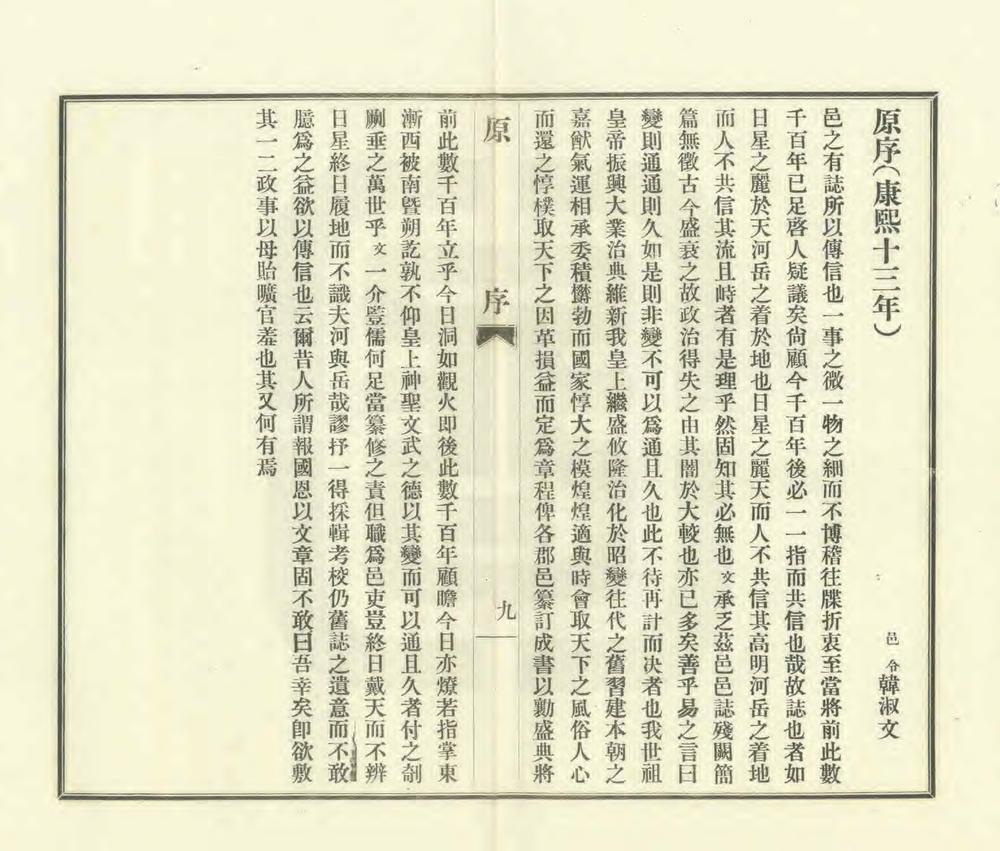 原序（康熙十三年）
邑令韓淑文
邑之有誌所以傳信也一事之微一物之細而不博稽往牒折衷至當將前此數
千百年已足啓人疑議矣尙顧今千百年後必一一指而共信也哉故誌也者如
日星之麗於天河岳之着於地也日星之麗天而人不共信其高明河岳之着地
而人不共信其流且峙者有是理乎然固知其必無也文承乏茲邑邑誌殘闕簡
篇無徵古今盛衰之故政治得失之由其闇於大較也亦已多矣善乎易之言曰
變則通通則久如是則非變不可以爲通且久也此不待再計而决者也我世祖
皇帝振興大業治典維新我皇上繼盛攸隆治化於昭變往代之舊習建本朝之
嘉猷氣運相承委積欝勃而國家惇大之模煌煌適與時會取天下之風俗人心
而還之惇樸取天下之因革損益而定爲章程俾各郡邑纂訂成書以勷盛典將
原序
九
前此數千百年立乎今日洞如觀火即後此數千百年顧瞻今日亦燎若指掌東
漸西被南曁朔訖孰不仰皇上神聖文武之德以其變而可以通且久者付之剞
劂垂之萬世乎文一介豎儒何足當纂修之責但職爲邑吏豈終日戴天而不辨
日星終日履地而不識夫河與岳哉謬抒一得採輯考校仍舊誌之遺意而不敢
臆爲之益欲以傳信也云爾昔人所謂報國恩以文章固不敢曰吾幸矣卽欲敷
其一二政事以毋貽曠官羞也其又何有焉